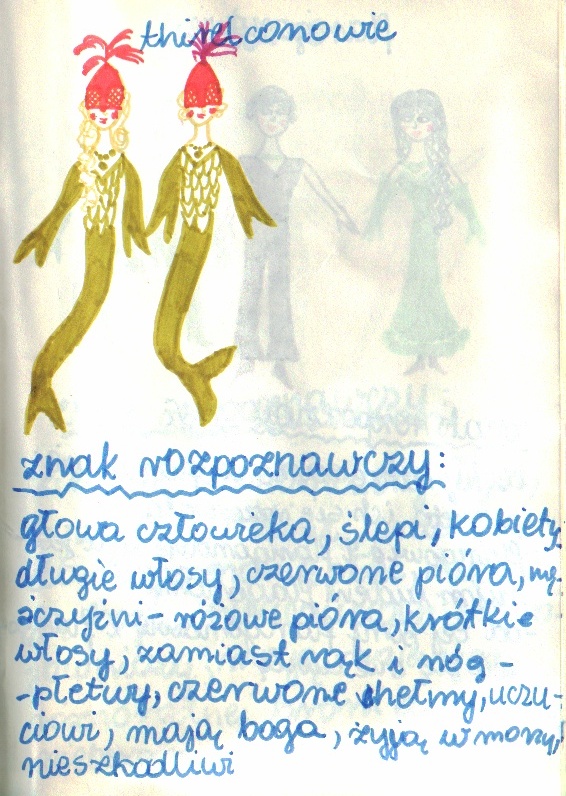 thirelconowie
znak rozpoznawczy:
głowa człowieka, ślepi, kobiety
długie włosy, czerwone pióra, mę-
żczyźni - różowe pióra, krótkie
włosy, zamiast rąk i nóg -
- płetwy, czerwone hełmy, uczu-
ciowi, mają boga, żyją w morzu,
nieszkodliwi